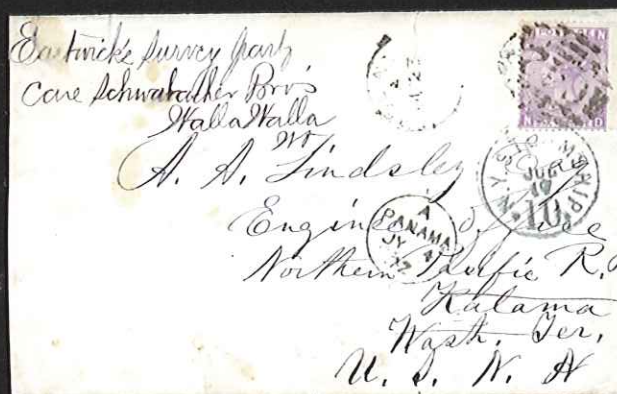 Eastwick's Survey party
Care Schwabacher Bro's
Walla Walla
WT
A. A. Lindsley
Engineer Office
Northern Pacific R.
Kalama
Wash. Ter.
U. S. N. A
A
PANAMA
JY 4
72
N.Y. STEAMSHIP
JUL
10